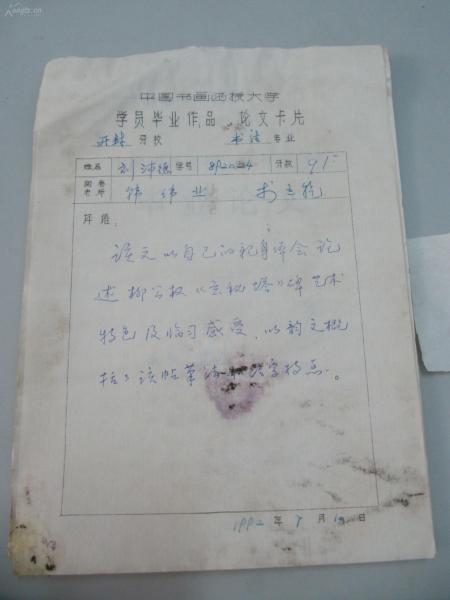 中国书画函授大学
学员毕业作品 论文卡片
分校 书法 专业
姓名 刘沛 学号 分数 91
阅卷老师 韩伟业
评语：
该文以自己的亲身体会论
述柳公权《玄秘塔》碑艺术
特色及临习感受，以韵文概
括了该帖笔法 结字特点。
1992年 月 日